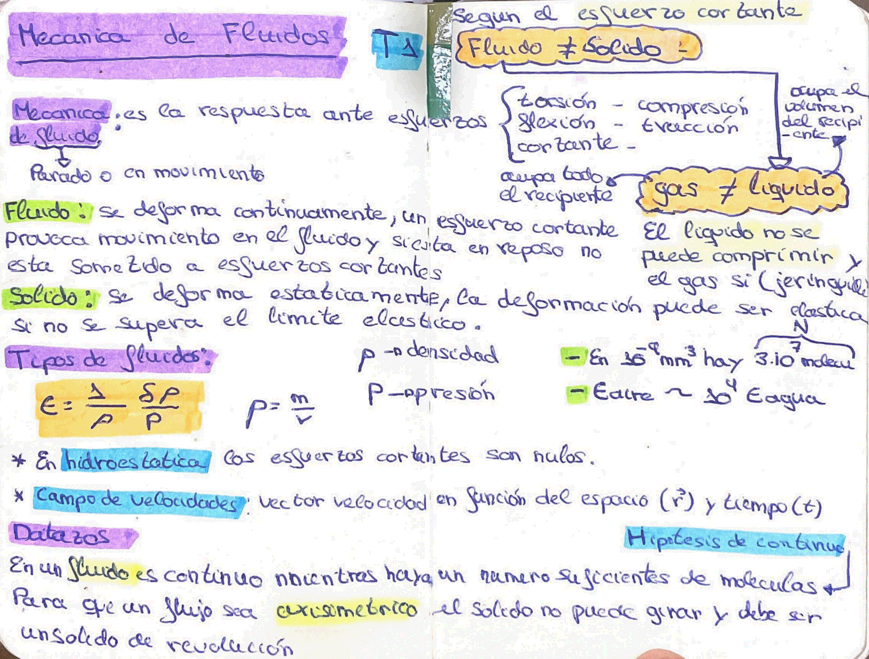 Mecanica de Fluidos T1
Según el esfuerzo cortante
Fluido ≠ Solido
Mecanica de fluido: es la respuesta ante esfuerzos
Parado o en movimiento
torsión - compresión
flexión - tracción
cortante -
ocupa el
volumen
del recipi
-ente
ocupa todo
el recipiente
gas ≠ liquido
Fluido: se deforma continuamente, un esfuerzo cortante
provoca movimiento en el fluido y si esta en reposo no
esta sometido a esfuerzos cortantes
El liquido no se
puede comprimir y
el gas si (jeringuilla
Solido: se deforma estaticamente, la deformación puede ser elastica
si no se supera el limite elastico.
Tipos de fluidos:
ρ → densidad
P → presión
ϵ = 1/ρ δρ/P
ρ = m/v
N
- En 10⁻⁹ mm³ hay 3·10⁷ molecu
- ϵaire ~ 10⁴ ϵagua
* En hidroestatica los esfuerzos cortantes son nulos.
* Campo de velocidades: vector velocidad en función del espacio (r⃗) y tiempo (t)
Datazos
Hipotesis de continuo
En un fluido es continuo mientras haya un numero suficientes de moleculas
Para que un flujo sea axisimetrico el solido no puede girar y debe ser
un solido de revolución